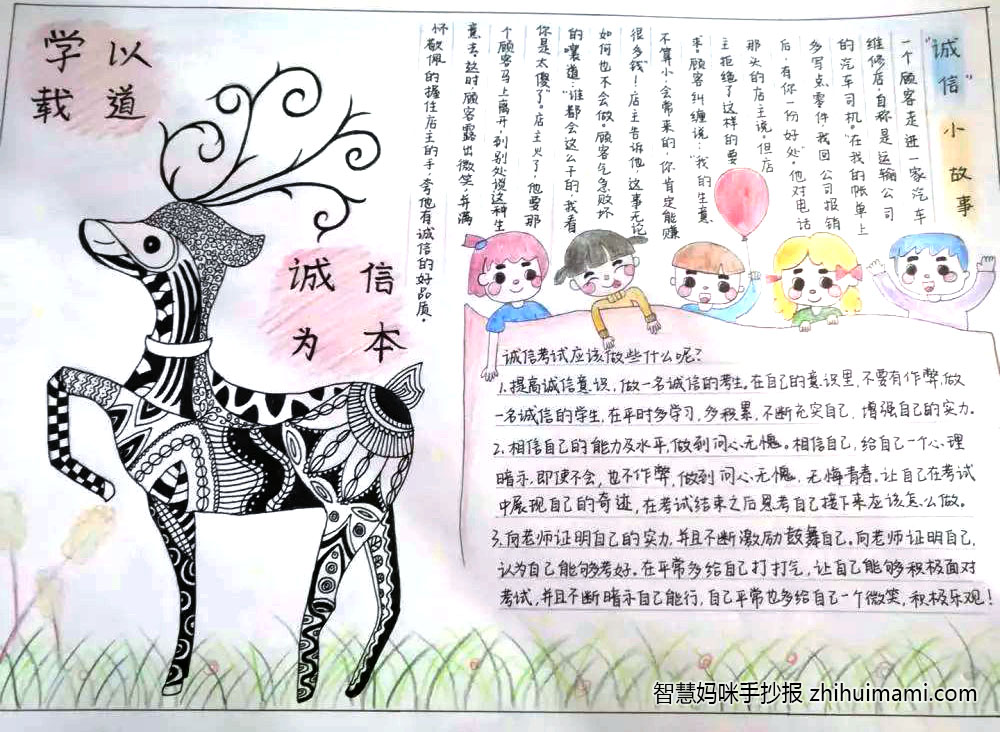 学以
载道
诚信
为本
"诚信"
小故事
一个顾客走进一家汽车
维修店,自称是运输公司
的汽车司机。"在我的帐单上
多写点零件,我回公司报销
后,有你一份好处。"他对电话
那头的店主说。但店
主拒绝了这样的要
求。顾客纠缠说:"我的生意
不算小,会常来的,你肯定能赚
很多钱!店主告诉他,这事无论
如何也不会做。顾客气急败坏
的嚷道:"谁都会这么干的,我看
你是太傻了。店主火了,他要那
个顾客马上离开,到别处谈这种生
意去。这时,顾客露出微笑,并满
怀敬佩的握住店主的手,夸他有诚信的好品质。
诚信考试应该做些什么呢?
1.提高诚信意识,做一名诚信的考生。在自己的意识里,不要有作弊,做
一名诚信的学生,在平时多学习,多积累,不断充实自己,增强自己的实力。
2.相信自己的能力及水平,做到问心无愧。相信自己,给自己一个心理
暗示,即使不会,也不作弊,做到问心无愧,无悔青春。让自己在考试
中展现自己的奇迹,在考试结束之后思考自己接下来应该怎么做。
3.向老师证明自己的实力,并且不断激励鼓舞自己。向老师证明自己,
认为自己能够考好。在平常多给自己打打气,让自己能够积极面对
考试,并且不断暗示自己能行,自己平常也多给自己一个微笑,积极乐观!
智慧妈咪手抄报 zhihuimami.com